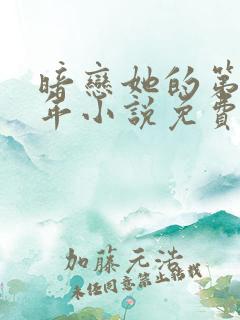 暗戀她的第
年小說免費
加藤元浩
未经同意禁止转载